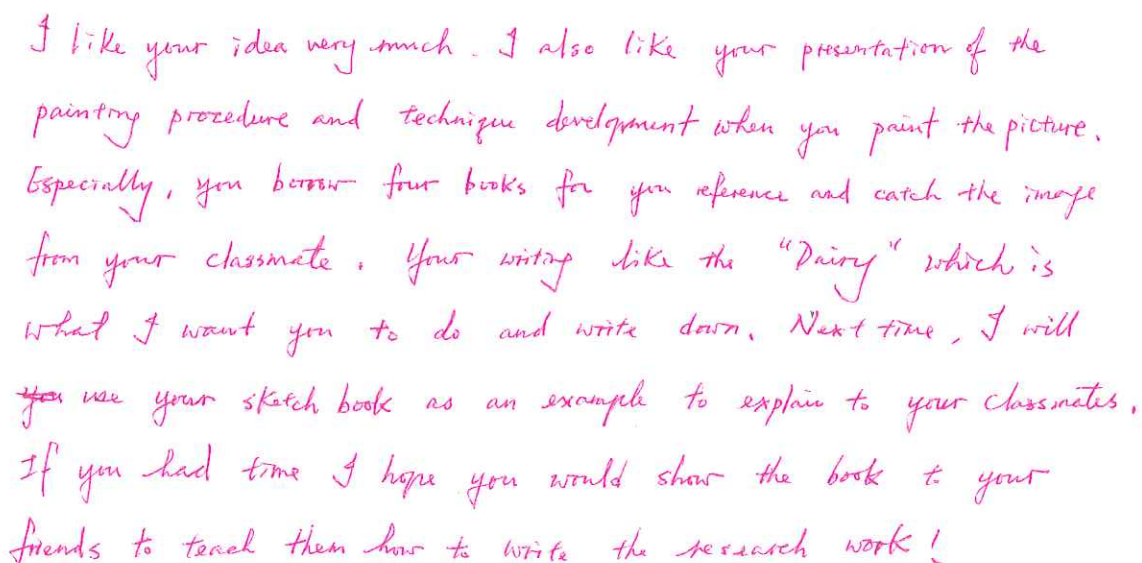 I like your idea very much. I also like your presentation of the
painting procedure and technique development when you paint the picture.
Especially, you borrow four books for you reference and catch the image
from your classmate. Your writing like the "Dairy" which is
what I want you to do and write down. Next time, I will
you use your sketch book as an example to explain to your classmates.
If you had time I hope you would show the book to your
friends to teach them how to write the research work!